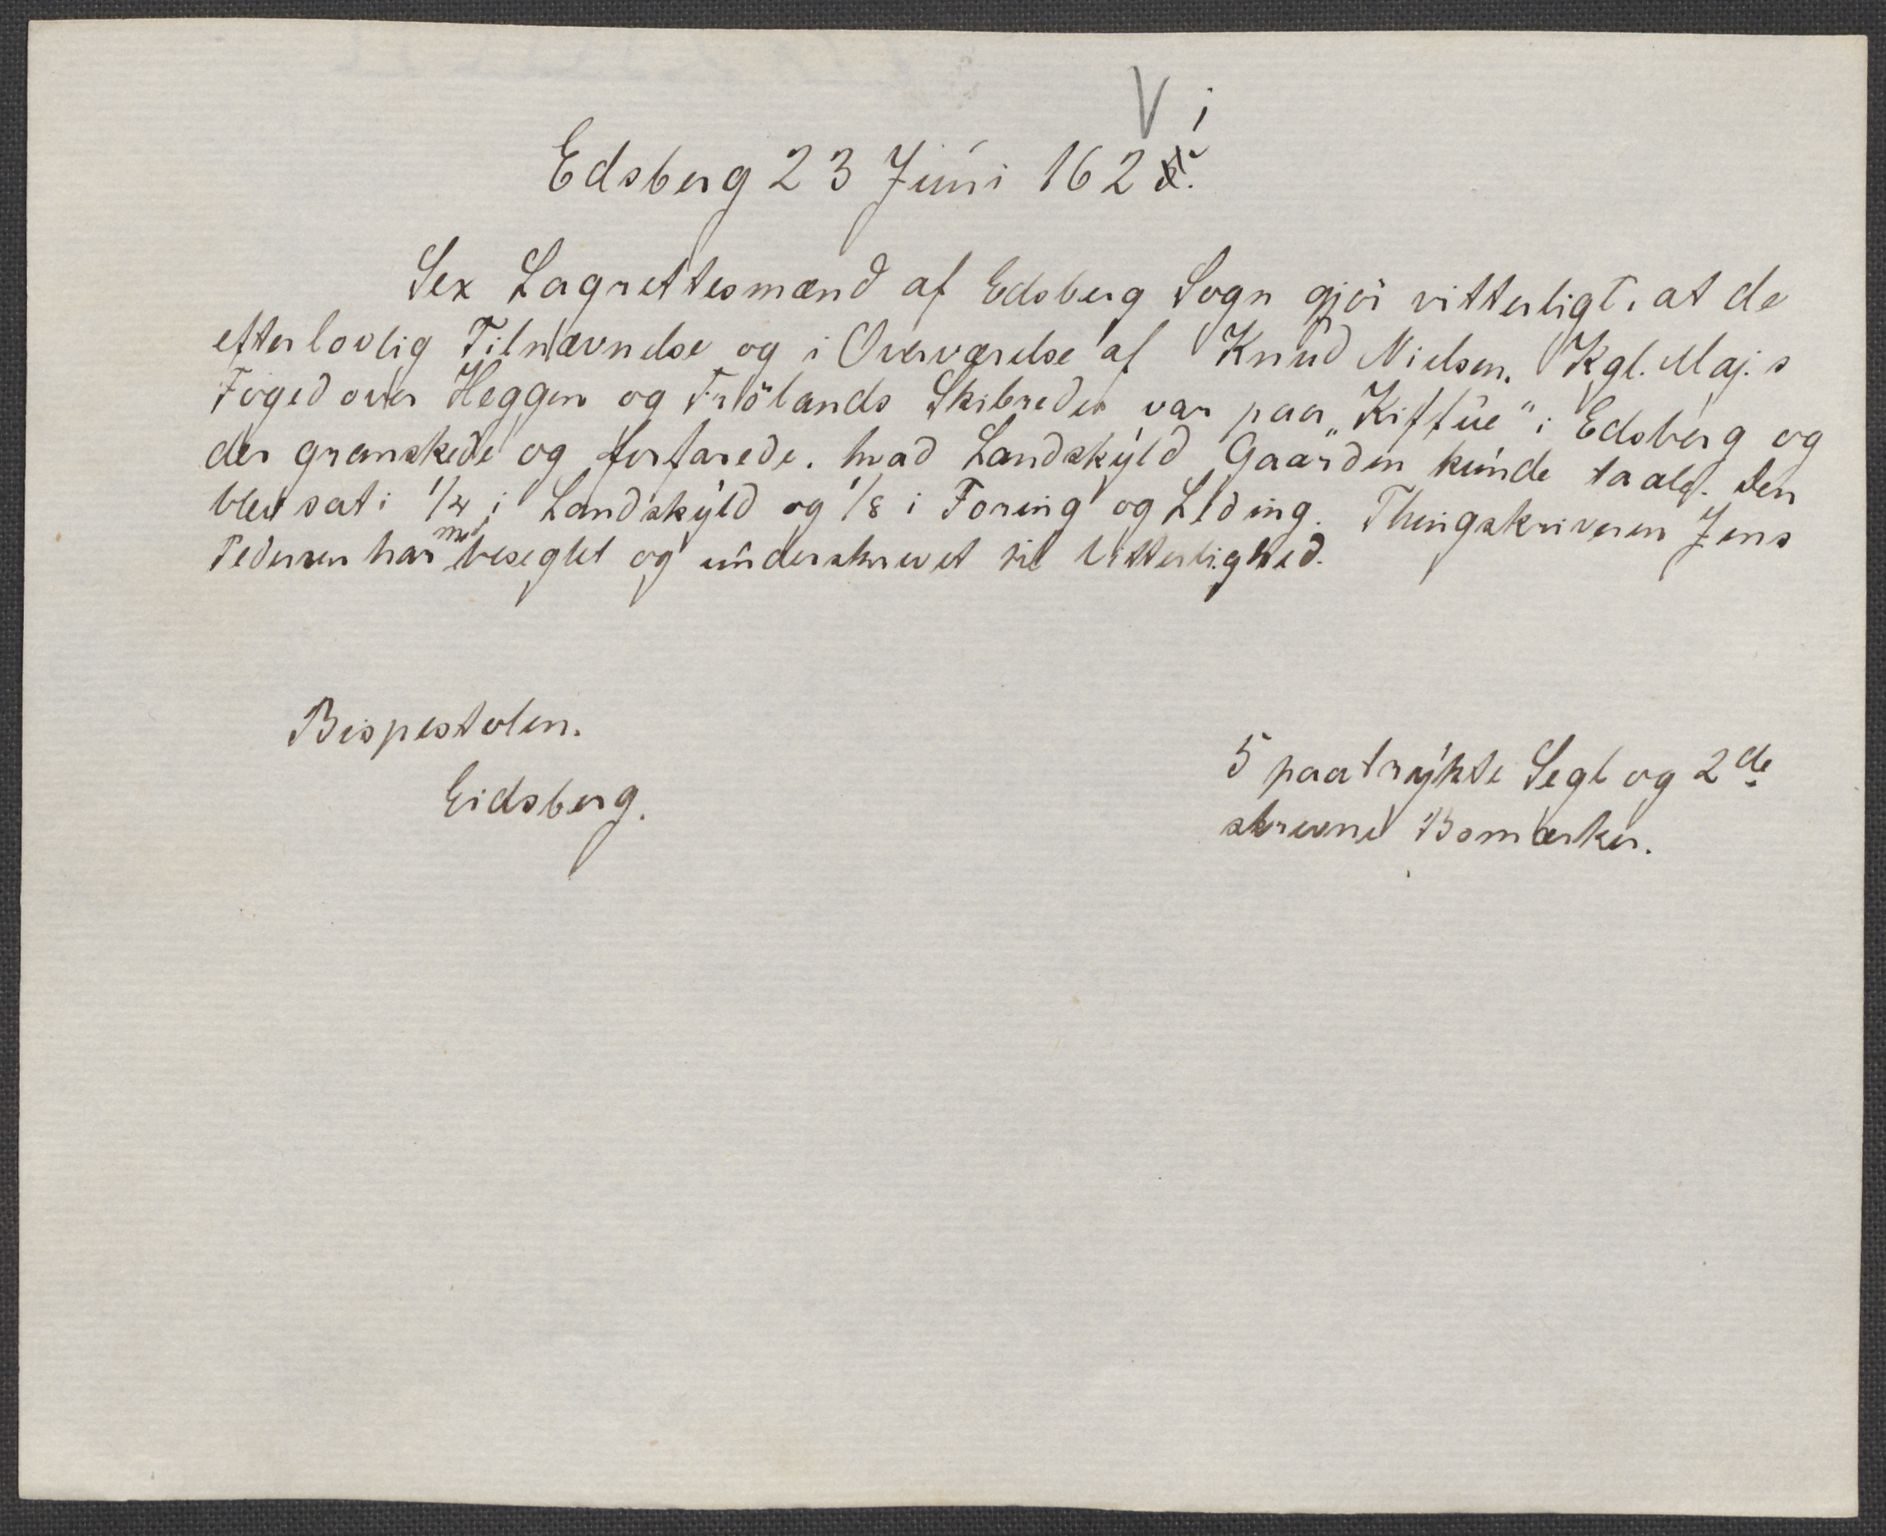 V i
Edsberg 23 Juni 162
Sex Lagrettesmænd af Edsberg Sogn gjör vitterligt, at de
efter lovlig Tilnævnelse og i Overværelse af Knud Nielsen, Kgl. Maj.s
Foged over Heggen og Frölands Skibreder var paa „Kiffue" i Edsberg og
der granskede og forfarede, hvad Landskyld Gaarden kunde taale. Den
blev sat i 1/4 i Landskyld og 1/8 i Foring og Leding. Thingskriveren Jens
Pedersen har med beseglet og underskrevet til Vitterlighed.
Bispestolen.
Eidsberg.
5 paatrykte Segl og 2de
skrevne Bomærker.